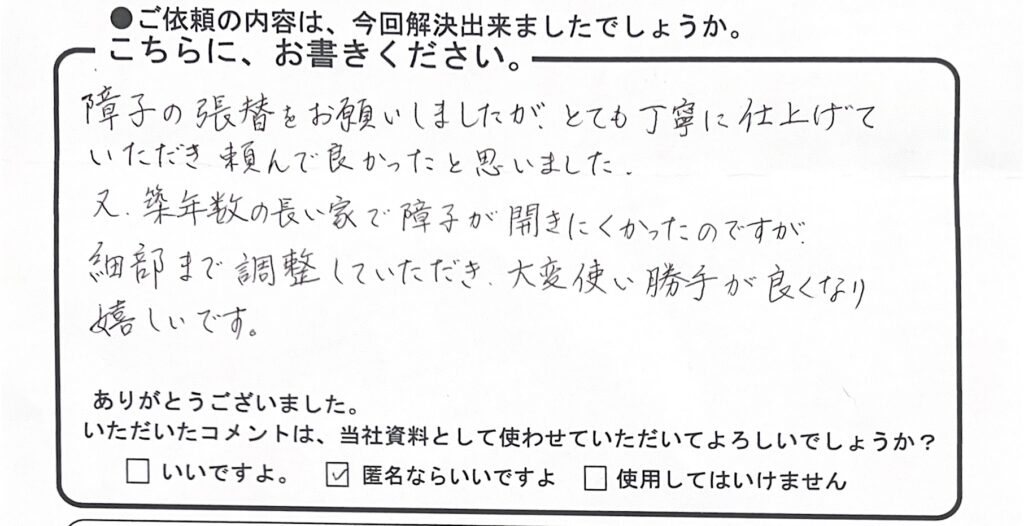 ●ご依頼の内容は、今回解決出来ましたでしょうか。
こちらに、お書きください。
障子の張替をお願いしましたが、とても丁寧に仕上げて
いただき頼んで良かったと思いました.
又、築年数の長い家で障子が開きにくかったのですが、
細部まで調整していただき、大変使い勝手が良くなり
嬉しいです。
ありがとうございました。
いただいたコメントは、当社資料として使わせていただいてよろしいでしょうか？
□ いいですよ。 ☑ 匿名ならいいですよ □ 使用してはいけません